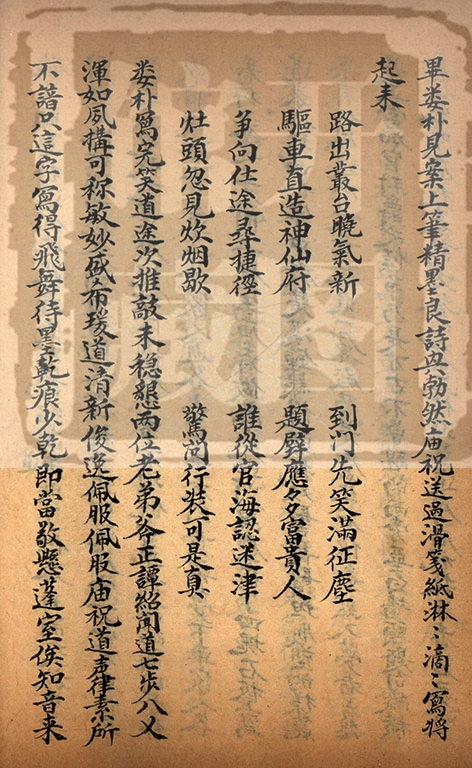 畢娄朴見案上筆精墨良詩興勃然庙祝送過滑箋紙淋〻滴〻寫將
起来
路出叢台晚氣新 到門先笑滿征塵
驅車直造神仙府 題壁應多富貴人
争向仕途尋捷徑 誰從官海認迷津
灶頭忽見炊烟歇 驚问行裝可是真
娄朴寫完笑道途次推敲未稳懇兩位老弟斧正譚紹闻道七步八乂
渾如夙搆可称敏妙盛希瑗道清新俊逸佩服佩服庙祝道声律素所
不諳只這字寫得飛舞待墨乾痕少乾即當敬懸蓬室俟知音来